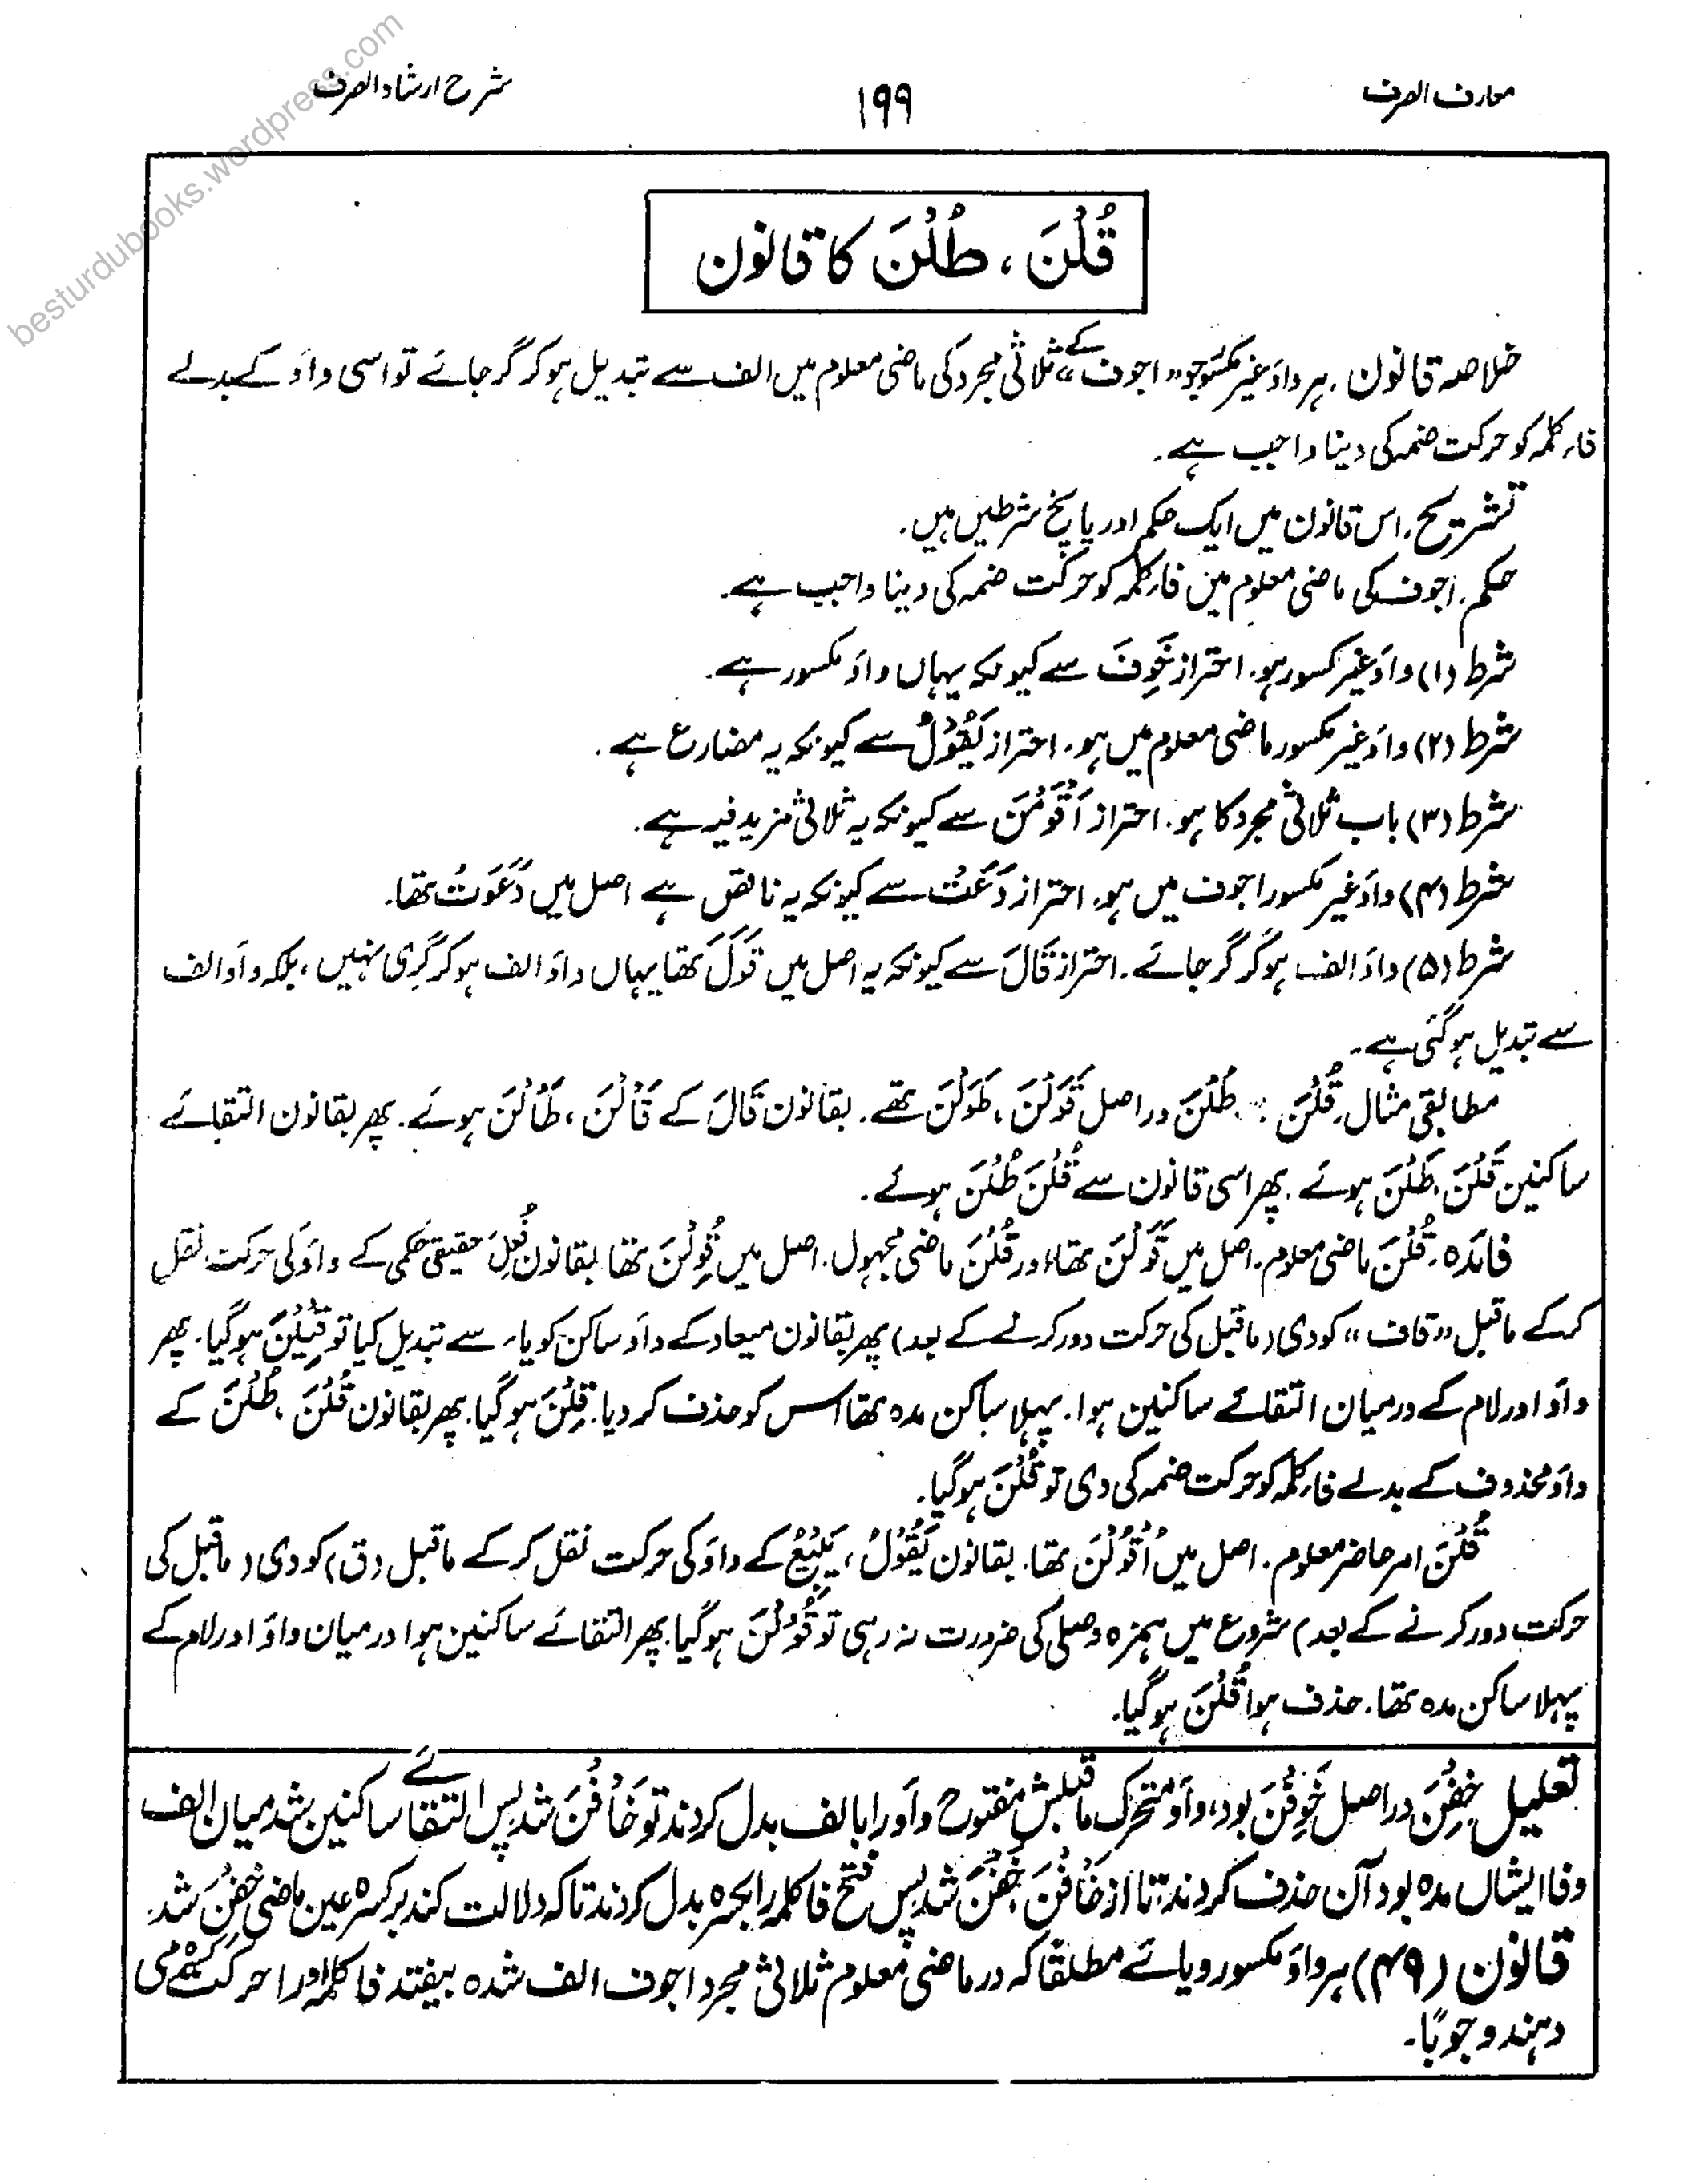 معارف الصرف
۱۹۹
شرح ارشاد الصرف
besturdubooks.wordpress.com
قُلْنَ ، طُلْنَ کا قانون
خلاصہ قانون . ہر واؤ غیر مکسور جو "اجوف" کے ثلاثی مجرد کی ماضی معلوم میں الف سے تبدیل ہو کر گر جائے تو اسی واؤ کے بدلے
فار کلمہ کو حرکت ضمہ کی دینا واجب ہے۔
تشریح . اس قانون میں ایک حکم اور پانچ شرطیں ہیں۔
حکم . اجوف کی ماضی معلوم میں فار کلمہ کو حرکت ضمہ کی دینا واجب ہے۔
شرط (۱) واؤ غیر مکسور ہو. احتراز خَوِفَ سے کیونکہ یہاں واؤ مکسور ہے۔
شرط (۲) واؤ غیر مکسور ماضی معلوم میں ہو. احتراز یَقْوُلُ سے کیونکہ یہ مضارع ہے۔
شرط (۳) باب ثلاثی مجرد کا ہو. احتراز اَقْوَمْنَ سے کیونکہ یہ ثلاثی مزید فیہ ہے۔
شرط (۴) واؤ غیر مکسور اجوف میں ہو. احتراز دَعَتْ سے کیونکہ یہ ناقص ہے اصل میں دَعَوَتْ تھا۔
شرط (۵) واؤ الف ہو کر گر جائے. احتراز قَالَ سے کیونکہ یہ اصل میں قَوَلَ تھا یہاں واؤ الف ہو کر گری نہیں ، بلکہ واؤ الف
سے تبدیل ہو گئی ہے۔
مطابقی مثال . قُلْنَ ، طُلْنَ دراصل قَوَلْنَ ، طَوَلْنَ تھے. بقانون قَالَ کے قَالْنَ ، طَالْنَ ہوئے. پھر بقانون التقائے
ساکنین قَلْنَ ، طَلْنَ ہوئے . پھر اسی قانون سے قُلْنَ طُلْنَ ہوئے۔
فائدہ . قُلْنَ ماضی معلوم. اصل میں قَوَلْنَ تھا، اور قُلْنَ ماضی مجہول. اصل میں قُوِلْنَ تھا بقانون فُعِلَ حقیقی حکمی کے واؤ کی حرکت نقل
کر کے ماقبل "قاف" کو دی (ماقبل کی حرکت دور کرنے کے بعد) پھر بقانون میعاد کے واؤ ساکن کو یا، سے تبدیل کیا تو قِیْلْنَ ہو گیا. پھر
واؤ اور لام کے درمیان التقائے ساکنین ہوا. پہلا ساکن مدہ تھا اس کو حذف کر دیا. قِلْنَ ہو گیا. پھر بقانون قُلْنَ ، طُلْنَ کے
واؤ محذوف کے بدلے فار کلمہ کو حرکت ضمہ کی دی تو قُلْنَ ہو گیا۔
قُلْنَ امر حاضر معلوم. اصل میں اُقْوُلْنَ تھا. بقانون یَقُوْلُ ، یَبِیْعُ کے واؤ کی حرکت نقل کر کے ماقبل (ق) کو دی (ماقبل کی
حرکت دور کرنے کے بعد) شروع میں ہمزہ وصلی کی ضرورت نہ رہی تو قُوْلْنَ ہو گیا. پھر التقائے ساکنین ہوا درمیان واؤ اور لام کے
پہلا ساکن مدہ تھا. حذف ہوا قُلْنَ ہو گیا۔
تعلیل خِفْنَ دراصل خَوِفْنَ بود، واؤ متحرک ماقبلش مفتوح واؤ را بالف بدل کردند تو خَافْنَ شد پس التقائے ساکنین شد میان الف
وفا ایشاں مدہ بود آن حذف کردند تا از خَافْنَ خَفْنَ شد پس فتح فا کلمہ را بکسرہ بدل کردند تاکہ دلالت کند بر کسرہ عین ماضی خِفْنَ شد۔
قانون (۴۹) ہر واؤ مکسور و یائے مطلقًا کہ در ماضی معلوم ثلاثی مجرد اجوف الف شدہ بیفتد فا کلمہ او را حرکت کسرہ می
دہند وجوبًا۔